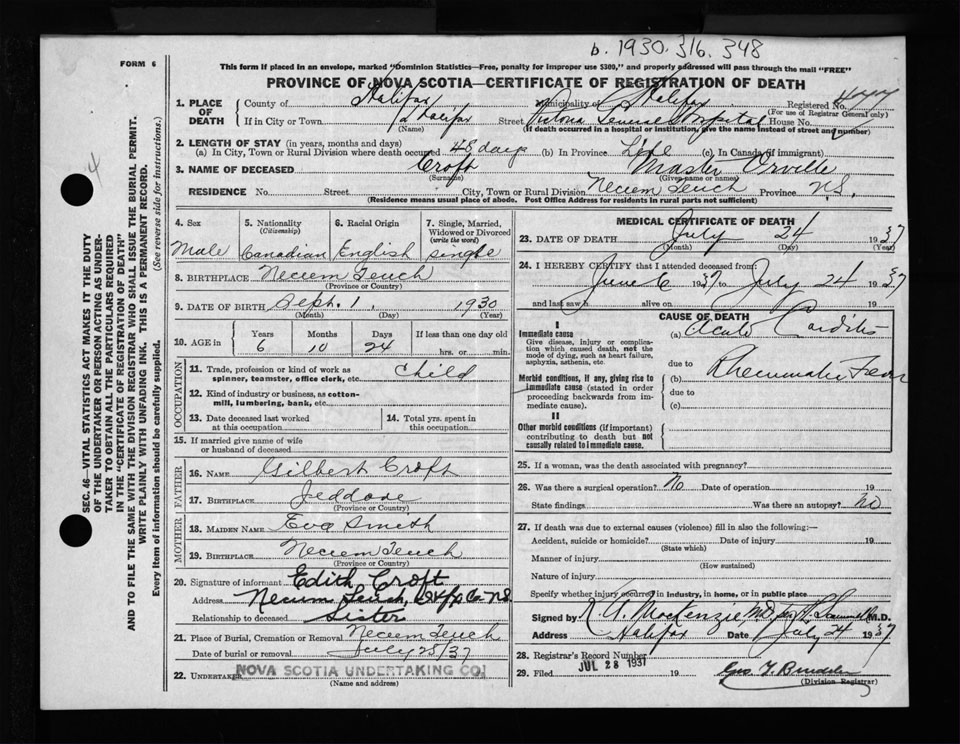 b. 1930. 316. 348
FORM 6
This form if placed in an envelope, marked "Dominion Statistics—Free, penalty for improper use $300," and properly addressed will pass through the mail "FREE"
PROVINCE OF NOVA SCOTIA—CERTIFICATE OF REGISTRATION OF DEATH
1. PLACE OF DEATH
County of Halifax Municipality of Halifax Registered No.
(For use of Registrar General only)
If in City or Town Halifax Street Victoria General Hospital House No.
(Name) (If death occurred in a hospital or institution, give the name instead of street and number)
2. LENGTH OF STAY (in years, months and days)
(a) In City, Town or Rural Division where death occurred 48 days (b) In Province Life (c) In Canada (if immigrant)
3. NAME OF DECEASED Croft Master Orville
(Surname) (Given name or names)
RESIDENCE No. Street City, Town or Rural Division Necum Teuch Province N.S.
(Residence means usual place of abode. Post Office Address for residents in rural parts not sufficient)
4. Sex
Male
5. Nationality
(Citizenship)
Canadian
6. Racial Origin
English
7. Single, Married,
Widowed or Divorced
(write the word)
single
8. BIRTHPLACE Necum Teuch
(Province or Country)
9. DATE OF BIRTH Sept. 1, 1930
(Month) (Day) (Year)
10. AGE in
Years Months Days If less than one day old
6 10 24 hrs. or min.
OCCUPATION
11. Trade, profession or kind of work as
spinner, teamster, office clerk, etc. Child
12. Kind of industry or business, as cotton-
mill, lumbering, bank, etc.
13. Date deceased last worked
at this occupation
14. Total yrs. spent in
this occupation
15. If married give name of wife
or husband of deceased
FATHER
16. NAME Gilbert Croft
17. BIRTHPLACE Jeddore
(Province or Country)
MOTHER
18. MAIDEN NAME Eva Smith
19. BIRTHPLACE Necum Teuch
(Province or Country)
20. Signature of informant Edith Croft
Address Necum Teuch, Hfx Co. N.S.
Relationship to deceased Sister
21. Place of Burial, Cremation or Removal Necum Teuch
Date of burial or removal July 28/37
22. UNDERTAKER NOVA SCOTIA UNDERTAKING CO.
(Name and address)
MEDICAL CERTIFICATE OF DEATH
23. DATE OF DEATH July 24 1937
(Month) (Day) (Year)
24. I HEREBY CERTIFY that I attended deceased from
June 6 1937 to July 24 1937
and last saw h alive on 19
CAUSE OF DEATH
I
Immediate cause
Give disease, injury or complica-
tion which caused death, not the
mode of dying, such as heart failure,
asphyxia, asthenia, etc.
(a) Acute Carditis
due to
Morbid conditions, if any, giving rise to
immediate cause (stated in order
proceeding backwards from im-
mediate cause).
(b) Rheumatic Fever
due to
(c)
II
Other morbid conditions (if important)
contributing to death but not
causally related to immediate cause.
25. If a woman, was the death associated with pregnancy?
26. Was there a surgical operation? No Date of operation 19
State findings Was there an autopsy? No
27. If death was due to external causes (violence) fill in also the following:—
Accident, suicide or homicide? Date of injury 19
(State which)
Manner of injury
(How sustained)
Nature of injury
Specify whether injury occurred in industry, in home, or in public place
Signed by R. A. MacKenzie M.D. M.D.
Address Halifax Date July 24 1937
28. Registrar's Record Number
29. Filed JUL 28 1937 19
(Division Registrar)
SEC. 46—VITAL STATISTICS ACT MAKES IT THE DUTY
OF THE UNDERTAKER OR PERSON ACTING AS UNDER-
TAKER TO OBTAIN ALL THE PARTICULARS REQUIRED
IN THE "CERTIFICATE OF REGISTRATION OF DEATH"
AND TO FILE THE SAME WITH THE DIVISION REGISTRAR WHO SHALL ISSUE THE BURIAL PERMIT.
WRITE PLAINLY WITH UNFADING INK. THIS IS A PERMANENT RECORD.
Every item of information should be carefully supplied. (See reverse side for instructions.)
4